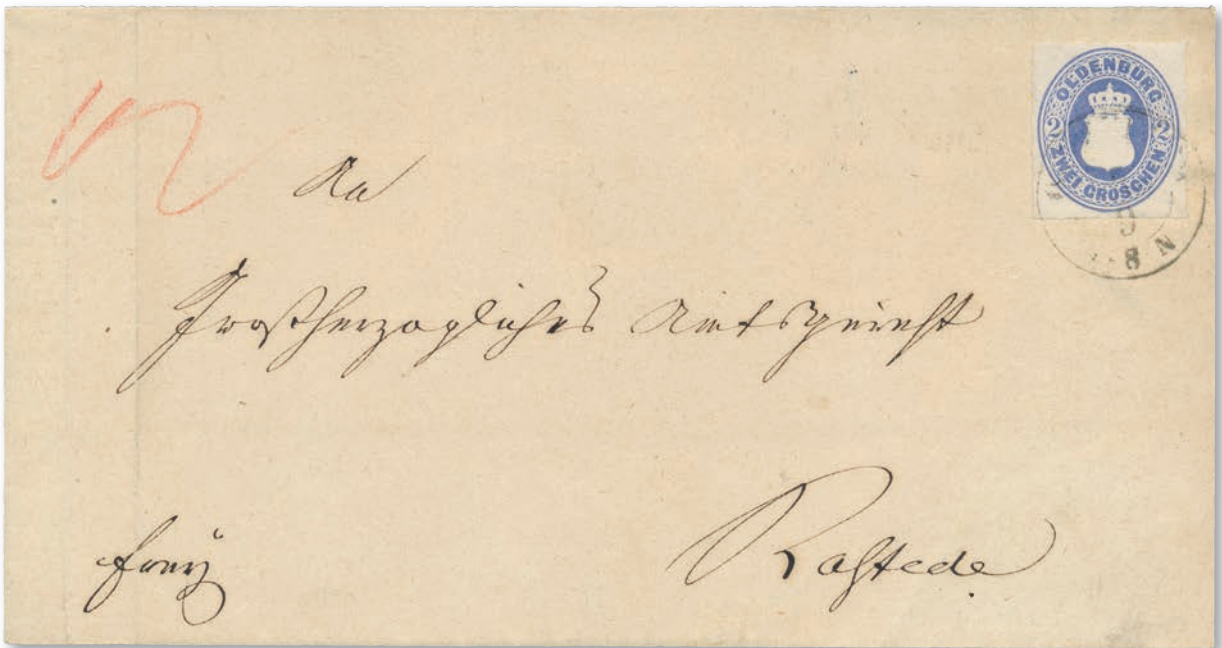 OLDENBURG
2 2
ZWEI GROSCHEN
9
8 N
An
Großherzogliches Amtsgericht
Rastede
frey